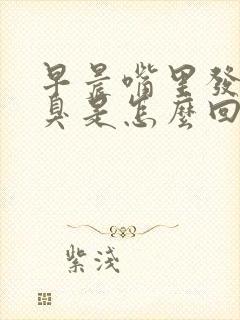 早晨嘴里發
臭是怎麼回
紫淺